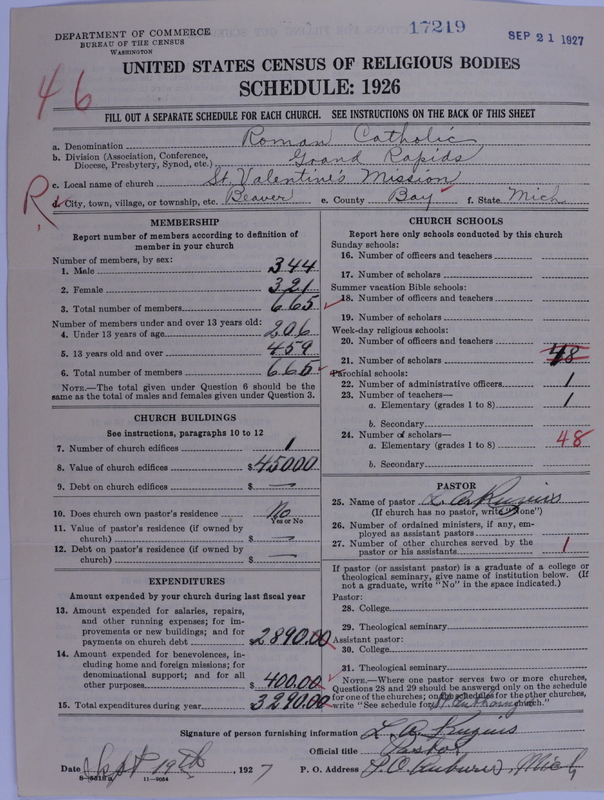 17219
SEP 21 1927
DEPARTMENT OF COMMERCE
BUREAU OF THE CENSUS
WASHINGTON
UNITED STATES CENSUS OF RELIGIOUS BODIES
SCHEDULE: 1926
46
FILL OUT A SEPARATE SCHEDULE FOR EACH CHURCH. SEE INSTRUCTIONS ON THE BACK OF THIS SHEET
a. Denomination Roman Catholic
b. Division (Association, Conference, Diocese, Presbytery, Synod, etc.) Grand Rapids
c. Local name of church St. Valentine's Mission
R
d. City, town, village, or township, etc. Beaver e. County Bay f. State Mich
MEMBERSHIP
Report number of members according to definition of
member in your church
Number of members, by sex:
1. Male 344
2. Female 321
3. Total number of members 665
Number of members under and over 13 years old:
4. Under 13 years of age 206
5. 13 years old and over 459
6. Total number of members 665
NOTE.—The total given under Question 6 should be
same as the total of males and females given under Question 3.
CHURCH BUILDINGS
See instructions, paragraphs 10 to 12
7. Number of church edifices 1
8. Value of church edifices $45000
9. Debt on church edifices $ —
10. Does church own pastor's residence No
Yes or No
11. Value of pastor's residence (if owned by
church) $ —
12. Debt on pastor's residence (if owned by
church) $ —
EXPENDITURES
Amount expended by your church during last fiscal year
13. Amount expended for salaries, repairs,
and other running expenses; for im-
provements or new buildings; and for
payments on church debt 2890.00
14. Amount expended for benevolences, in-
cluding home and foreign missions; for
denominational support; and for all
other purposes $ 400.00
15. Total expenditures during year 3290.00
CHURCH SCHOOLS
Report here only schools conducted by this church
Sunday schools:
16. Number of officers and teachers
17. Number of scholars
Summer vacation Bible schools:
18. Number of officers and teachers
19. Number of scholars
Week-day religious schools:
20. Number of officers and teachers
21. Number of scholars 48
Parochial schools:
22. Number of administrative officers 1
23. Number of teachers—
a. Elementary (grades 1 to 8) 1
b. Secondary
24. Number of scholars—
a. Elementary (grades 1 to 8) 48
b. Secondary
PASTOR
25. Name of pastor
(If church has no pastor, write "None")
26. Number of ordained ministers, if any, em-
ployed as assistant pastors
27. Number of other churches served by the
pastor or his assistants 1
If pastor (or assistant pastor) is a graduate of a college or
theological seminary, give name of institution below. (If
not a graduate, write "No" in the space indicated.)
Pastor:
28. College
29. Theological seminary
Assistant pastor:
30. College
31. Theological seminary
NOTE.—Where one pastor serves two or more churches,
Questions 28 and 29 should be answered only on the schedule
for one of the churches; on the schedules for the other churches,
write "See schedule for St. Anthony church."
Signature of person furnishing information
Official title Pastor
Date Sept 19th, 1927 P. O. Address P.O. Auburn, Mich
8-5518a 11-9054